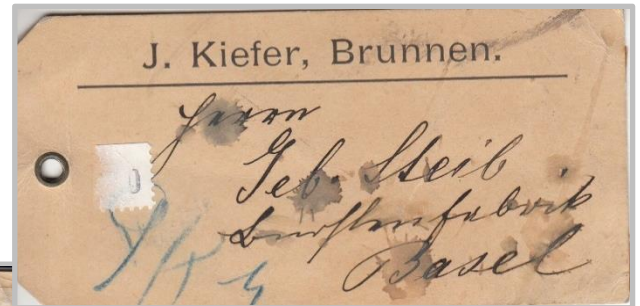 J. Kiefer, Brunnen.
Herrn
Geb. Steib
Bürstenfabrik
Basel